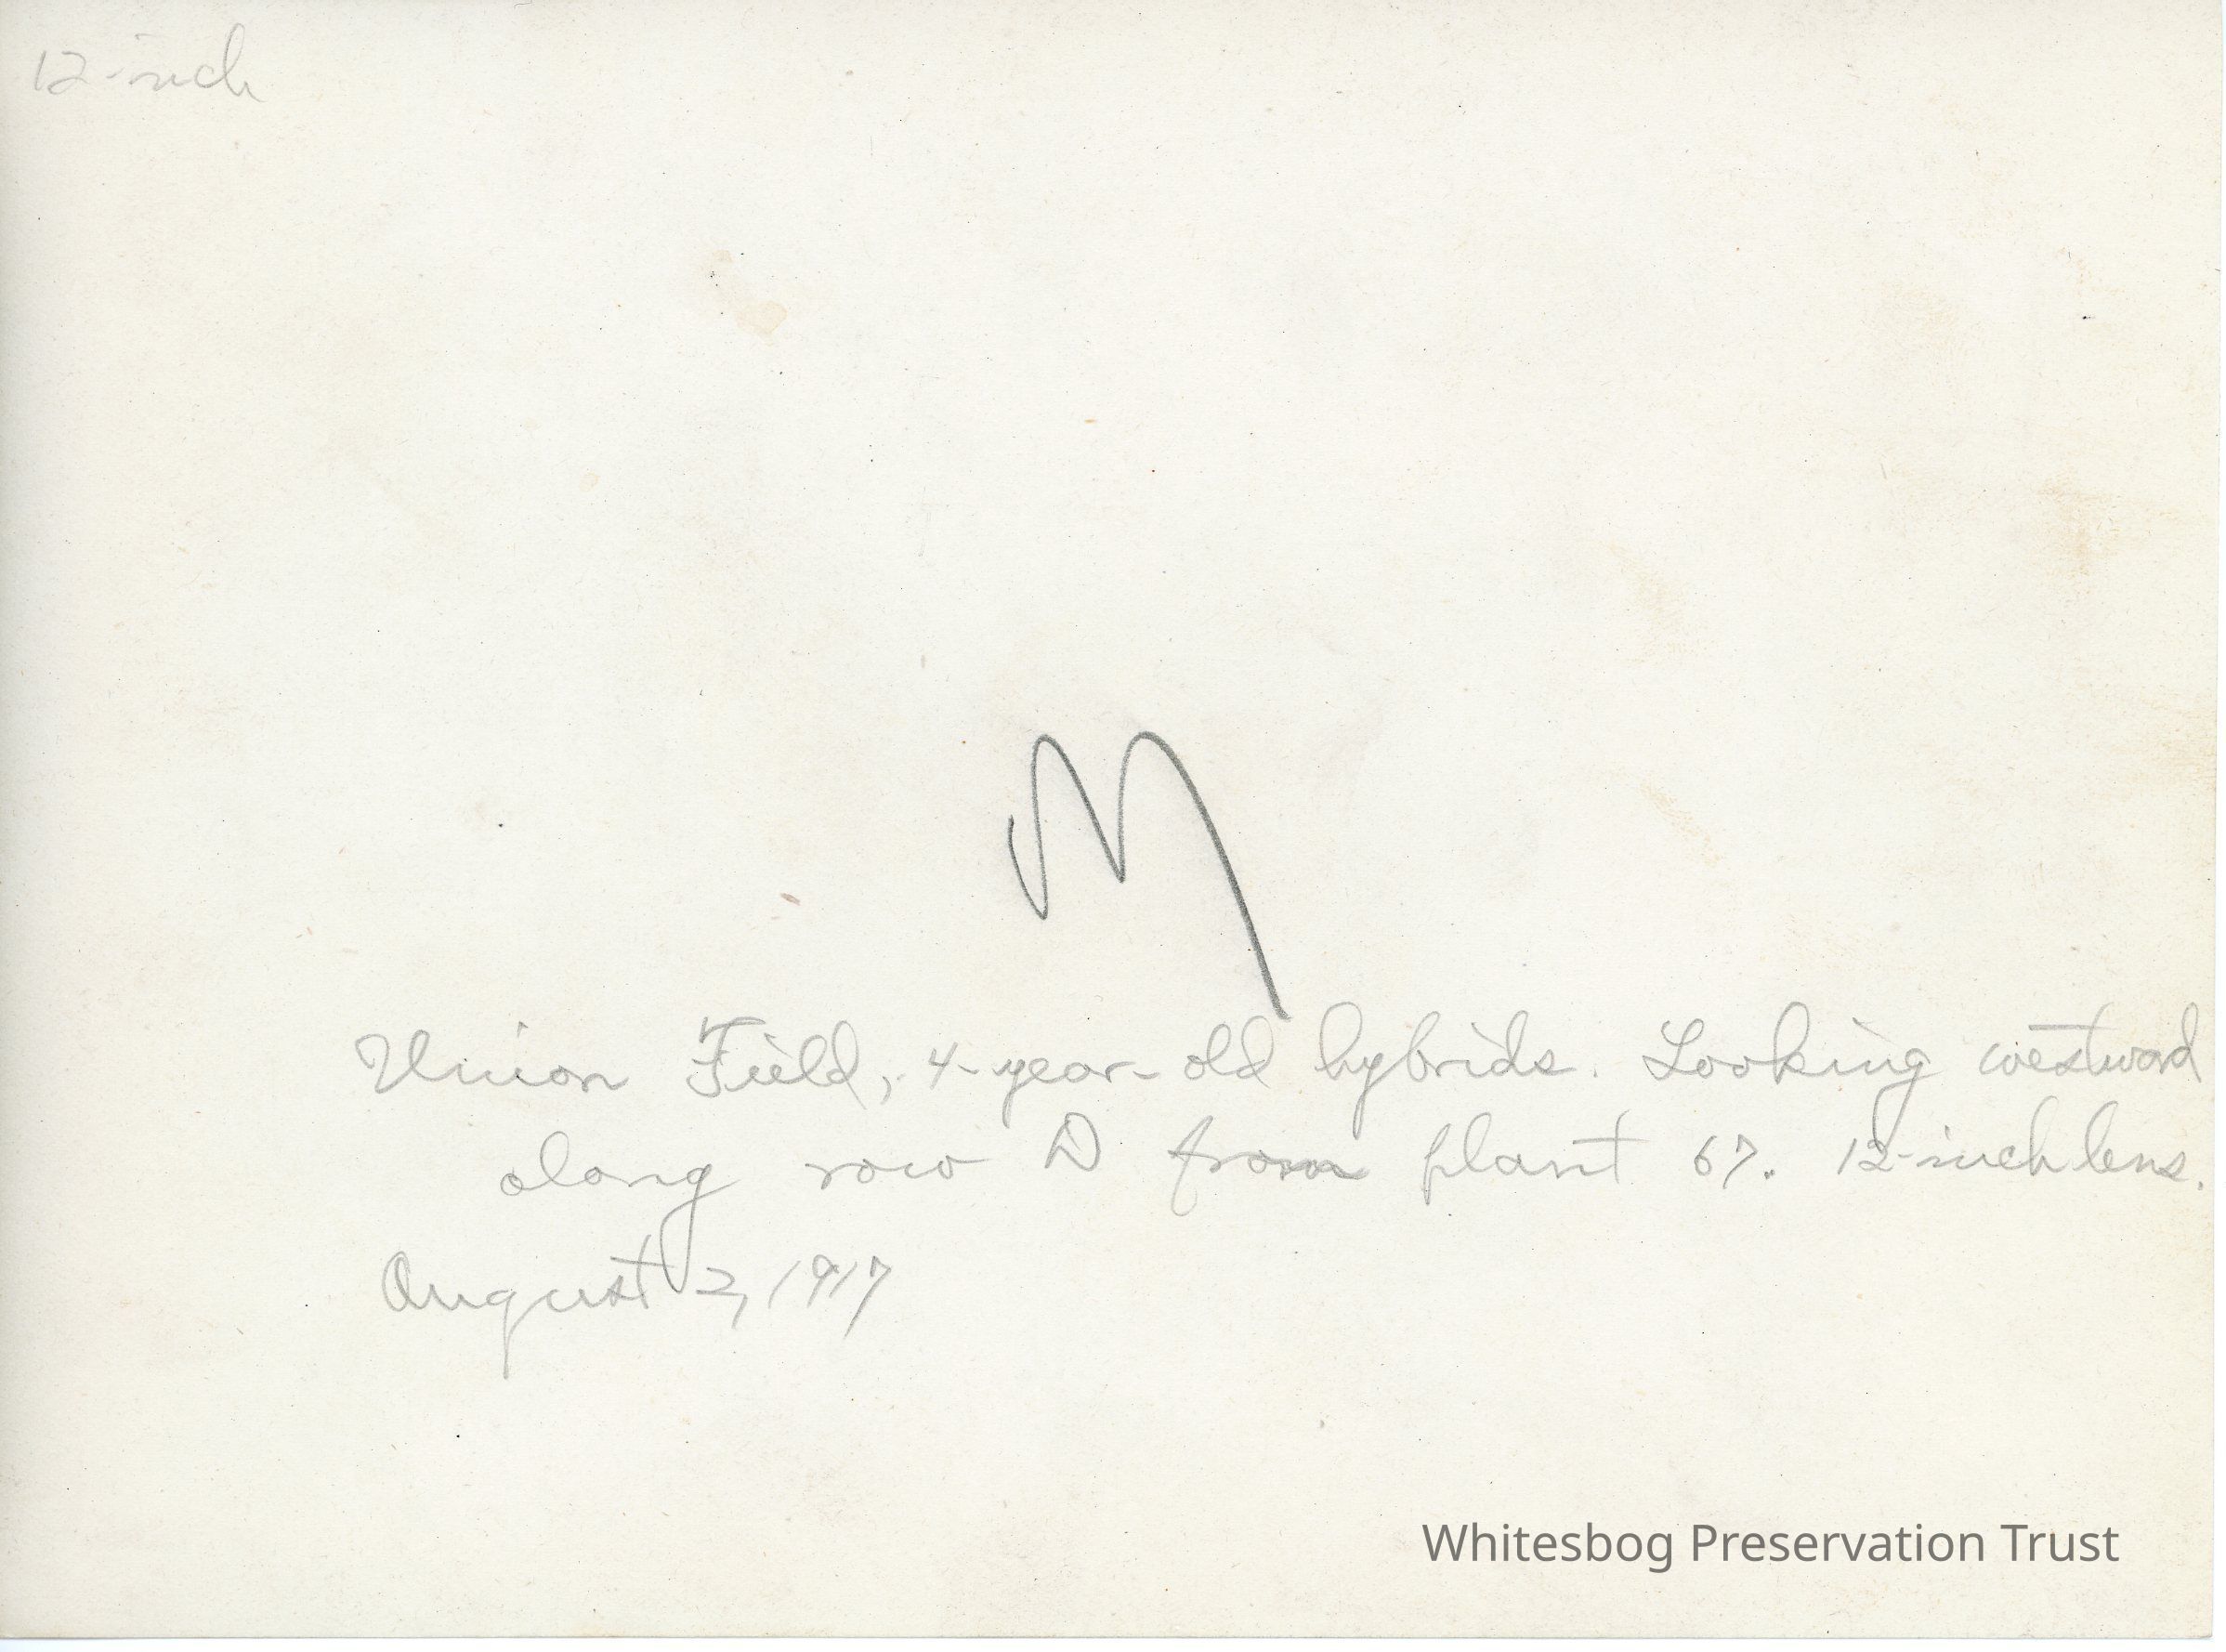 12-inch
M
Union Field, 4-year-old hybrids. Looking westward
along row D from plant 67. 12-inch lens.
August 2, 1917
Whitesbog Preservation Trust